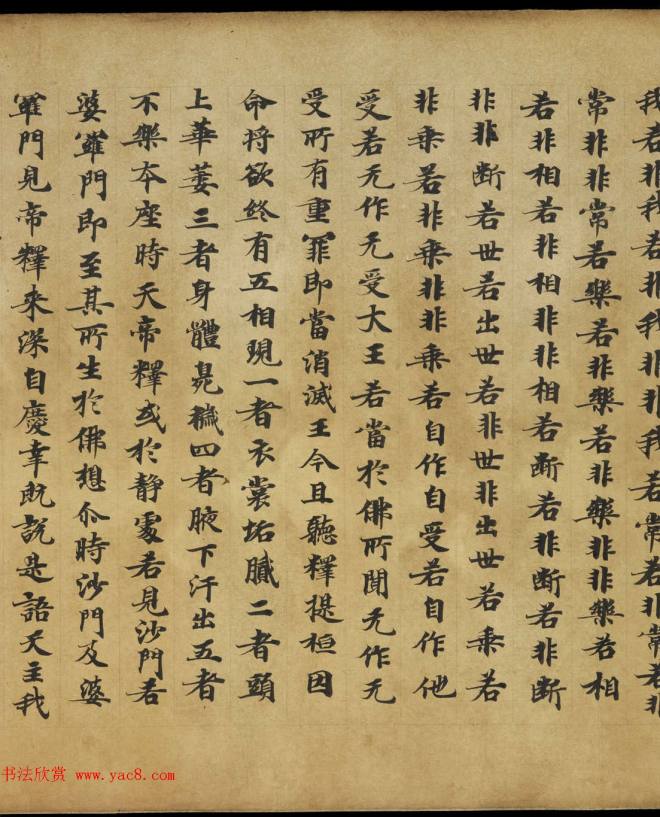 我若非我若非我非非我若常若非常若非
常非非常若樂若非樂若非樂非非樂若相
若非相若非相非非相若断若非断若非断
非非断若世若出世若非世非出世若乗若
非乗若非乗非非乗若自作自受若自作他
受若无作无受大王若當於佛所聞无作无
受所有重罪即當消滅王今且聽釋提桓因
命将欲終有五相現一者衣裳垢膩二者頭
上華萎三者身體臭穢四者腋下汗出五者
不樂本座時天帝釋或於静處若見沙門若
婆羅門即至其所生於佛想尒時沙門及婆
羅門見帝釋来深自慶幸既說是語天主我
书法欣赏 www.yac8.com